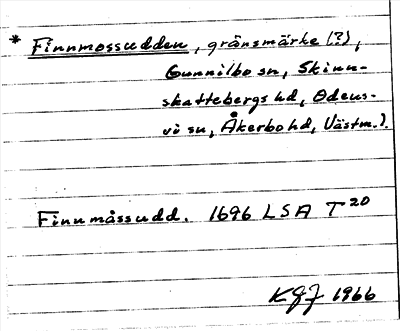 * Finnmossudden, gränsmärke (?),
Gunnilbo sn, Skinn-
skattebergs hd, Odens-
vi sn, Åkerbo hd, Västm.).
Finnmåssudd. 1696 LSA T 20
KGJ 1966